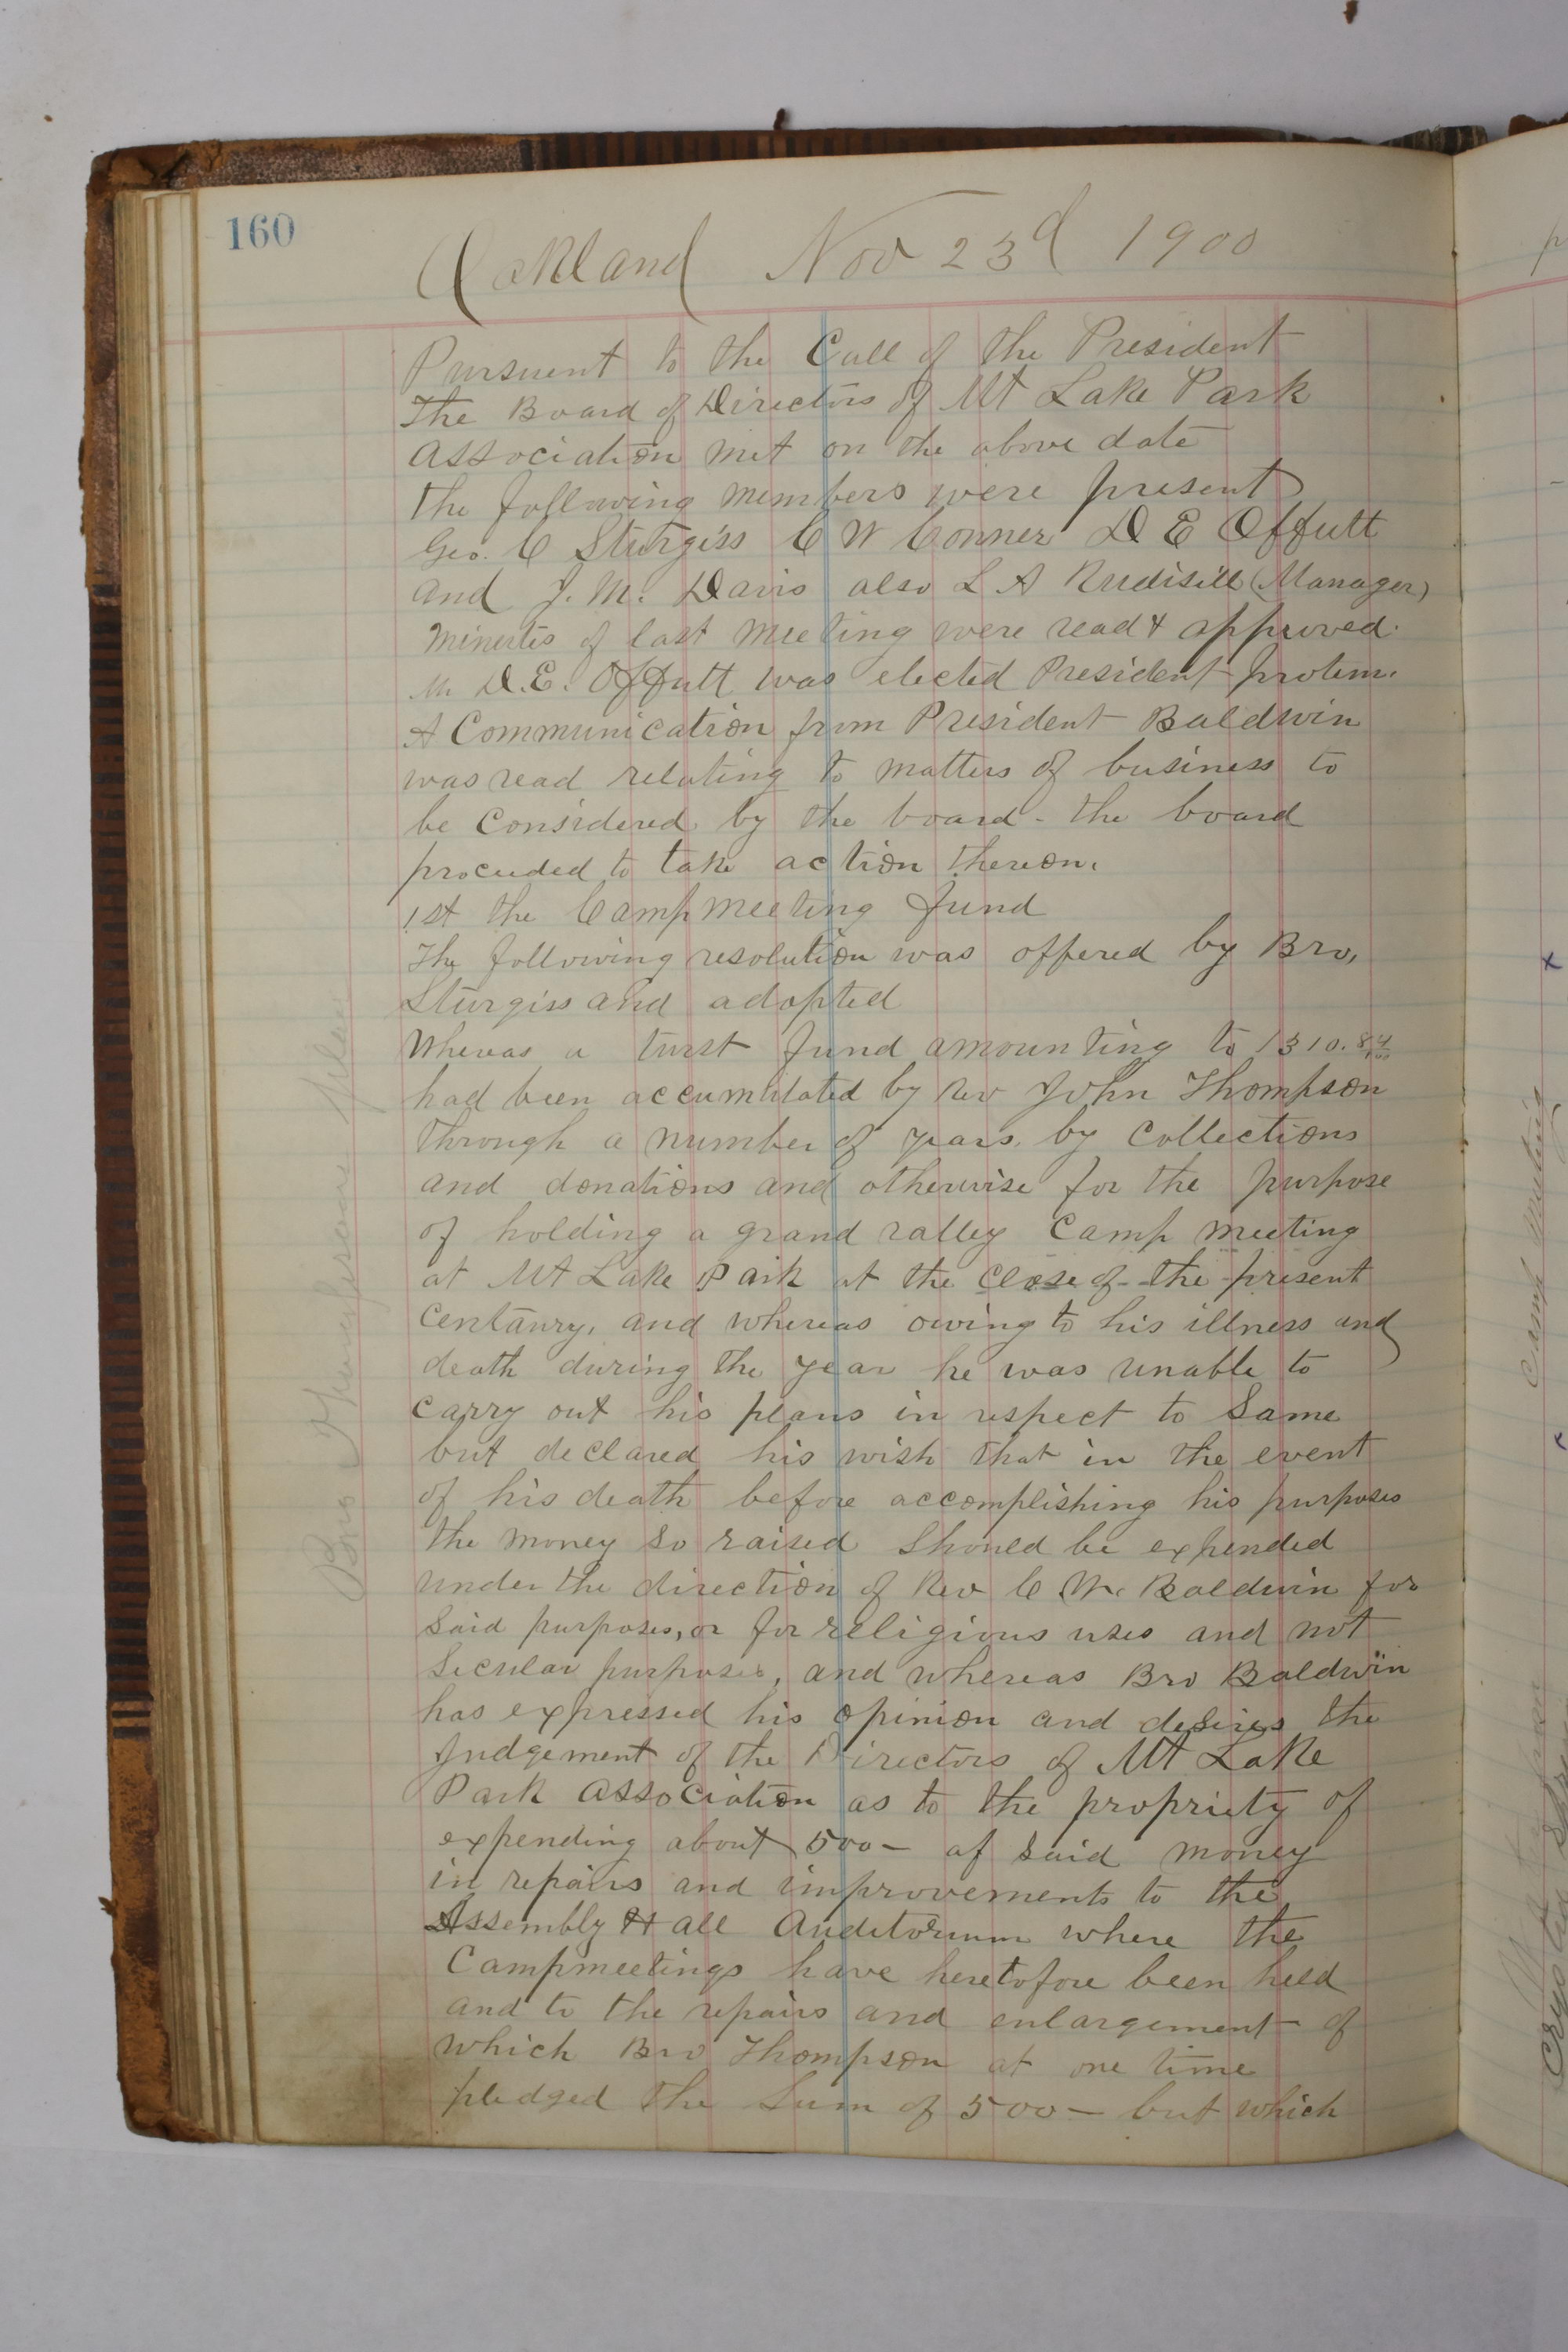 160
Oakland Nov 23d 1900
Pursuent to the Call of the President
The Board of Directors of Mt Lake Park
Association met on the above date
the following members were present
Geo. C Sturgiss C W Conner D E Offutt
and J. M. Davis also L A Rudisill (Manager)
Minutes of last meeting were read & approved.
M. D. E. Offutt was elected President protem.
A Communication from President Baldwin
was read relating to matters of business to
be Considered by the board - the board
proceeded to take action thereon.
1st the Campmeeting fund
The following resolution was offered by Bro.
Sturgiss and adopted
Whereas a turst fund amounting to 1310.84/100
had been accumulated by Rev John Thompson
through a number of years, by Collections
and donations and otherwise for the purpose
of holding a grand ralley Camp meeting
at Mt Lake Park at the close of the present
Centaury, and whereas owing to his illness and
death during the year he was unable to
carry out his plans in respect to Same
but declared his wish that in the event
of his death before accomplishing his purposes
the money so raised should be expended
under the direction of Rev C W. Baldwin for
said purposes, or for religious uses and not
Secular purposes, and whereas Bro Baldwin
has expressed his opinion and desires the
Judgement of the Directors of Mt Lake
Park Association as to the propriety of
expending about 500- of said money
in repairs and improvements to the
Assembly Hall Auditorium where the
Campmeetings have heretofore been held
and to the repairs and enlargement of
which Bro Thompson at one time
pledged the Sum of 500- but which
Bro Thompson
Camp Meeting